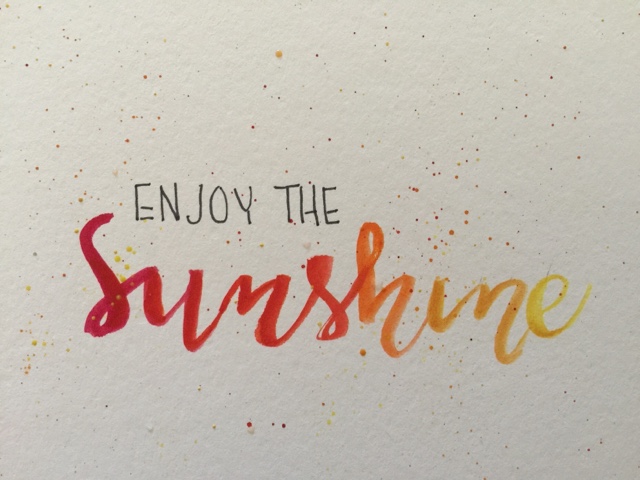 ENJOY THE
Sunshine